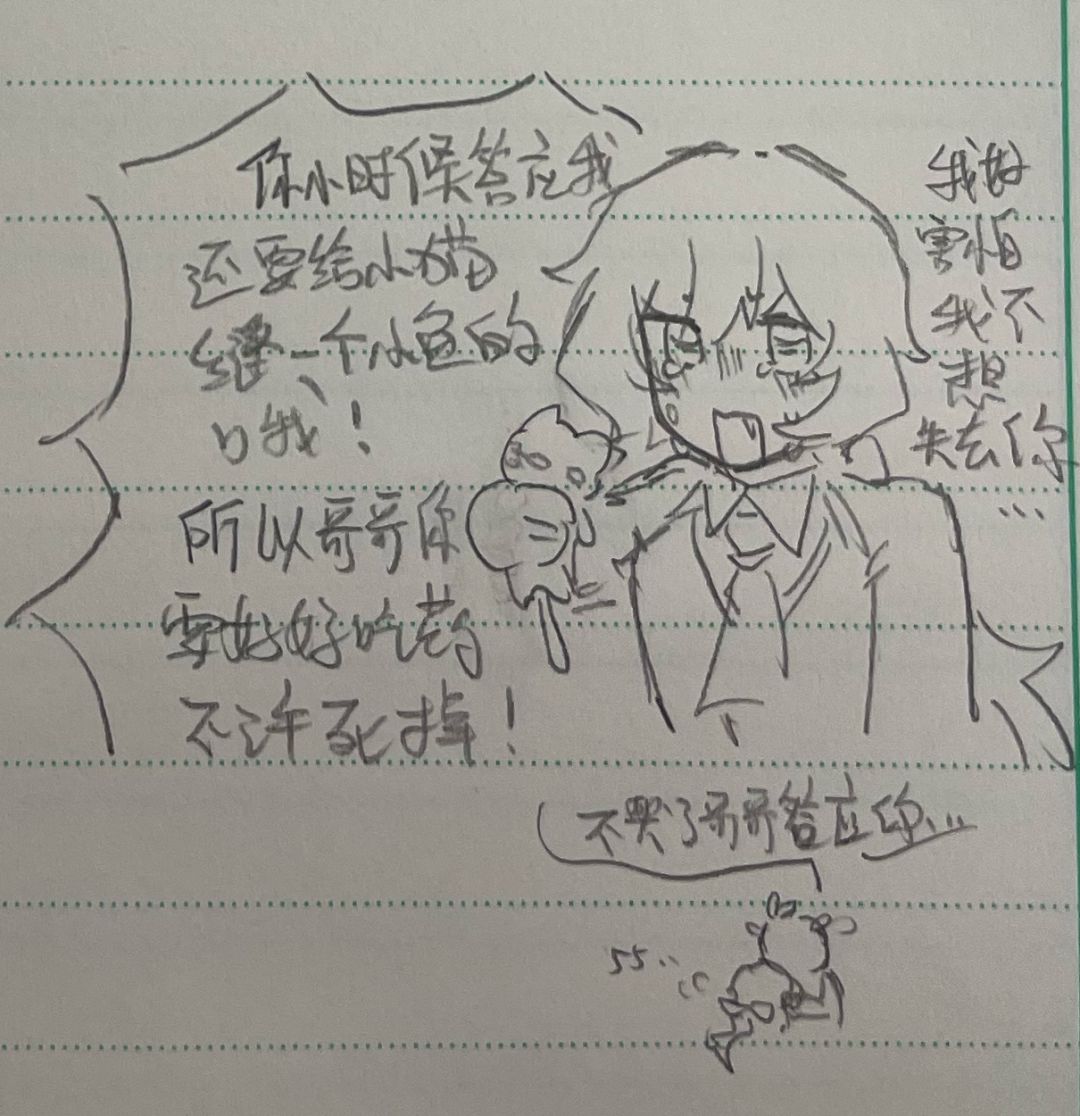 你小时候答应我
还要给小猫
缝一个小鱼的
口我!
所以哥哥你
要好好吃药
不许死掉!
我好
害怕
我不
想
失去你
...
不哭了哥哥答应你...
55...